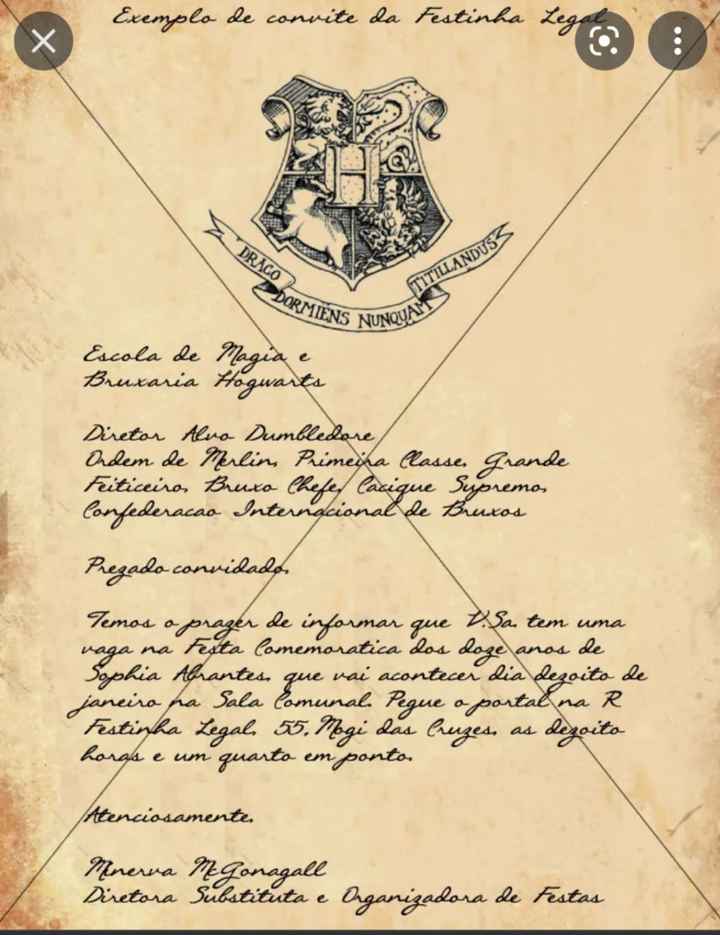 Exemplo de convite da Festinha Legal
H
DRACO DORMIENS NUNQUAM TITILLANDUS
Escola de Magia e
Bruxaria Hogwarts
Diretor Alvo Dumbledore
Ordem de Merlin, Primeira Classe, Grande
Feiticeiro, Bruxo Chefe, Cacique Supremo,
Confederacao Internacional de Bruxos
Prezado convidado,
Temos o prazer de informar que V.Sa. tem uma
vaga na Festa Comemoratica dos doze anos de
Sophia Abrantes, que vai acontecer dia dezoito de
janeiro na Sala Comunal. Pegue o portal na R
Festinha Legal, 55, Mogi das Cruzes, as dezoito
horas e um quarto em ponto.
Atenciosamente,
Minerva McGonagall
Diretora Substituta e Organizadora de Festas